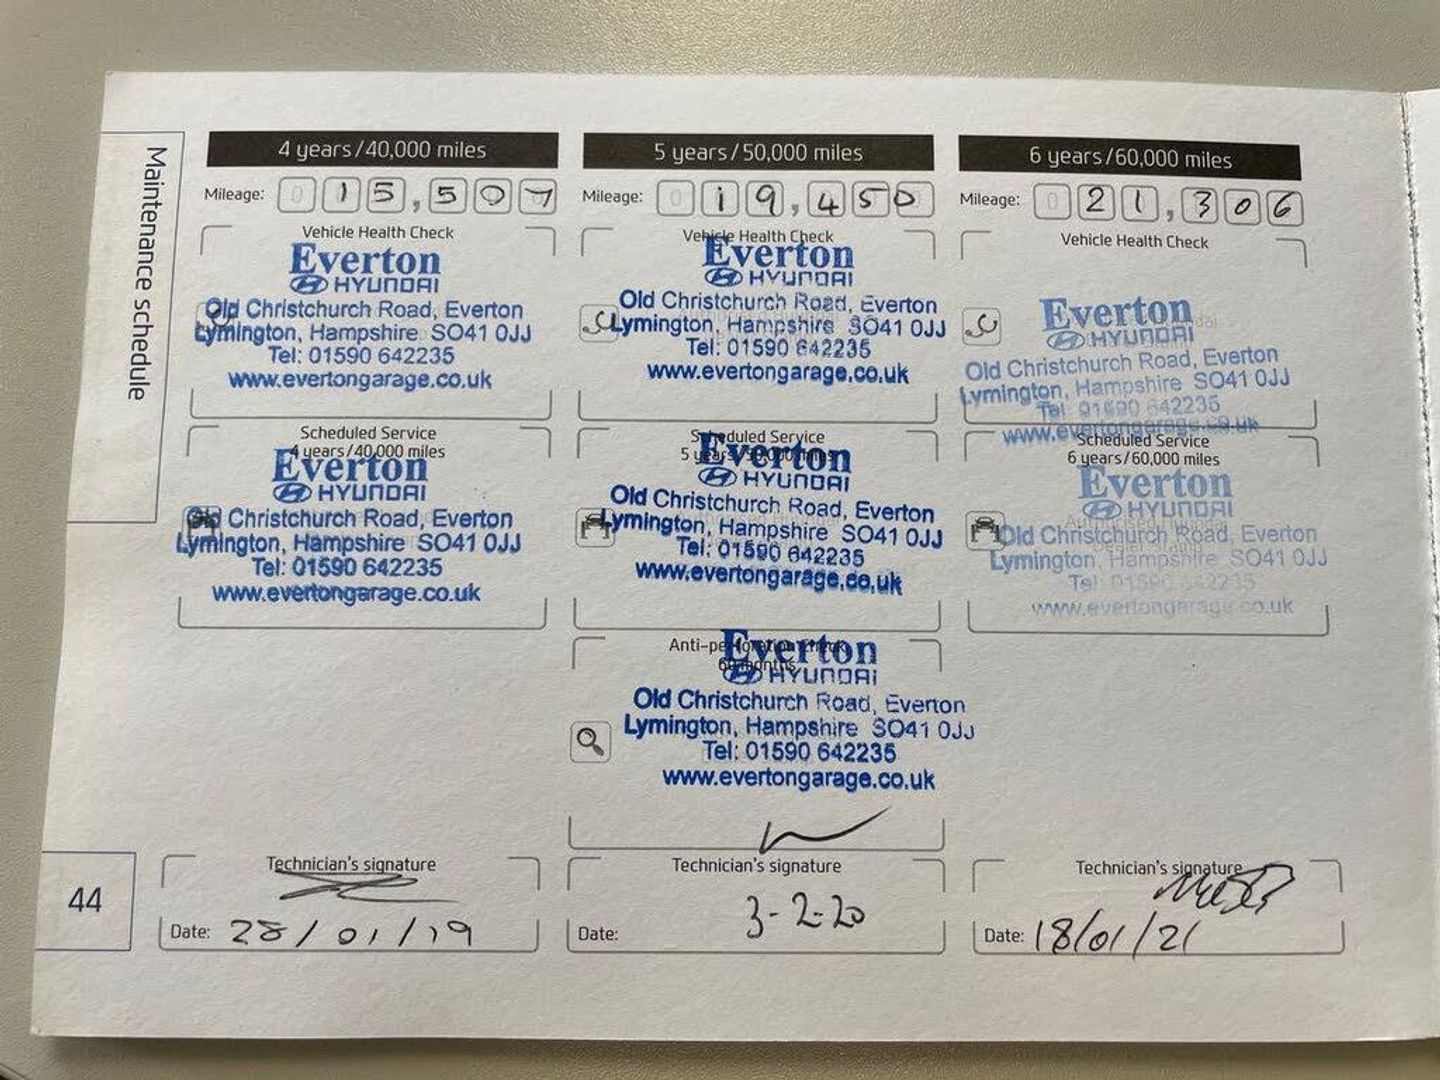 Maintenance schedule
4 years/40,000 miles
Mileage: 015,507
Vehicle Health Check
Everton
HYUNDAI
Old Christchurch Road, Everton
Lymington, Hampshire SO41 0JJ
Tel: 01590 642235
www.evertongarage.co.uk
Scheduled Service
4 years/40,000 miles
Everton
HYUNDAI
Old Christchurch Road, Everton
Lymington, Hampshire SO41 0JJ
Tel: 01590 642235
www.evertongarage.co.uk
Technician's signature
Date: 28/01/19
5 years/50,000 miles
Mileage: 019,450
Vehicle Health Check
Everton
HYUNDAI
Old Christchurch Road, Everton
Lymington, Hampshire SO41 0JJ
Tel: 01590 642235
www.evertongarage.co.uk
Scheduled Service
5 years/50,000 miles
Everton
HYUNDAI
Old Christchurch Road, Everton
Lymington, Hampshire SO41 0JJ
Tel: 01590 642235
www.evertongarage.co.uk
Anti-perforation Check
60 months
Everton
HYUNDAI
Old Christchurch Road, Everton
Lymington, Hampshire SO41 0JJ
Tel: 01590 642235
www.evertongarage.co.uk
Technician's signature
3-2-20
Date:
6 years/60,000 miles
Mileage: 021,306
Vehicle Health Check
Everton
HYUNDAI
Old Christchurch Road, Everton
Lymington, Hampshire SO41 0JJ
Tel 01590 642235
www.evertongarage.co.uk
Scheduled Service
6 years/60,000 miles
Everton
HYUNDAI
Old Christchurch Road, Everton
Lymington, Hampshire SO41 0JJ
Tel 01590 642235
www.evertongarage.co.uk
Technician's signature
Date: 18/01/21
44